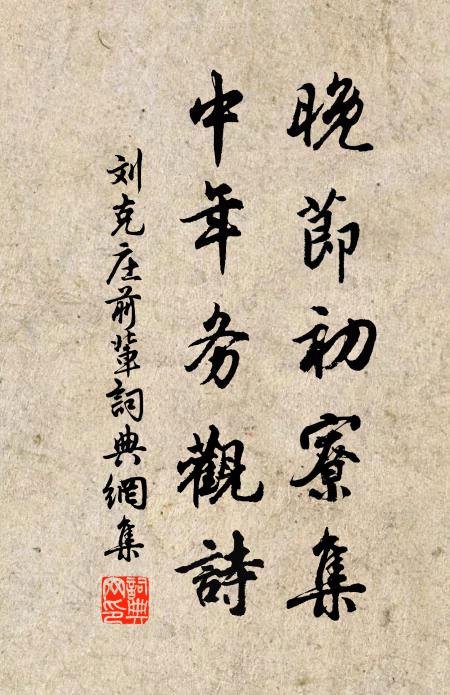 晚節初寮集
中年务觀詩
刘克庄前輩詞典網集
詞典网印